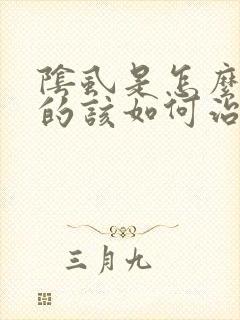 陰虱是怎麼
的該如何治
三月九